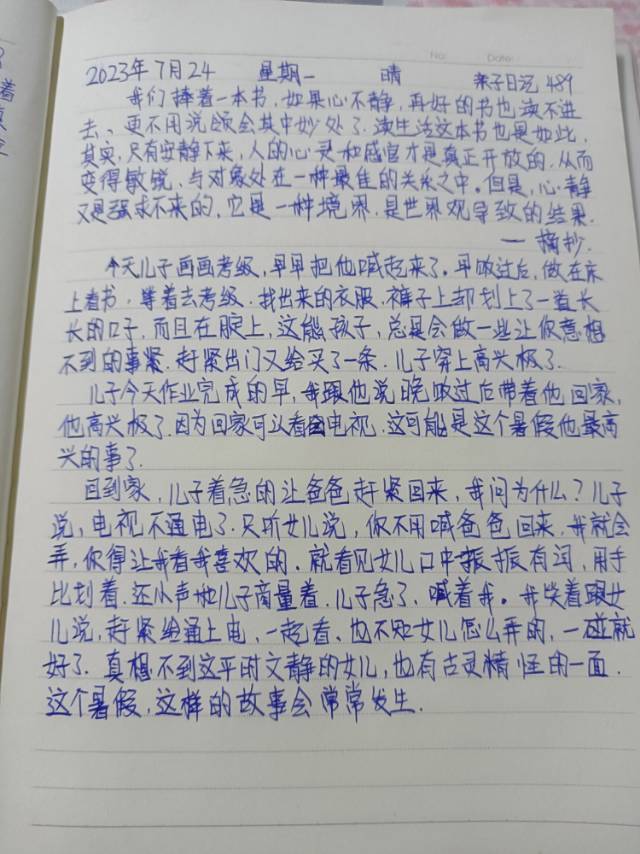 No: Date:
2023年7月24 星期一 晴 亲子日记 489
我们捧着一本书,如果心不静,再好的书也读不进
去、更不用说领会其中妙处了.读生活这本书也是如此,
其实,只有安静下来,人的心灵和感官才是真正开放的.从而
变得敏锐、与对象处在一种最佳的关系之中.但是,心静
又是强求不来的,它是一种境界.是世界观导致的结果.
一摘抄.
今天儿子画画考级,早早把他喊起来了.早饭过后,做在床
上看书,等着去考级.找出来的衣服.裤子上却划上了一道长
长的口子,而且在腚上,这熊孩子,总是会做一些让你意想
不到的事紧.赶紧出门又给买了一条.儿子穿上高兴极了.
儿子今天作业完成的早,我跟他说晚饭过后带着他回家,
他高兴极了.因为回家可以看电视.这可能是这个暑假他最高
兴的事了.
回到家,儿子着急的让爸爸赶紧回来,我问为什么?儿子
说,电视不通电了.只听女儿说,你不用喊爸爸回来,我就会
弄,你得让我看我喜欢的.就看见女儿口中振振有词,用手
比划着.还小声地儿子商量着.儿子急了,喊着我.我笑着跟女
儿说,赶紧给通上电,一起看、也不知女儿怎么弄的,一碰就
好了.真想不到这平时文静的女儿,也有古灵精怪的一面.
这个暑假,这样的故事会常常发生.